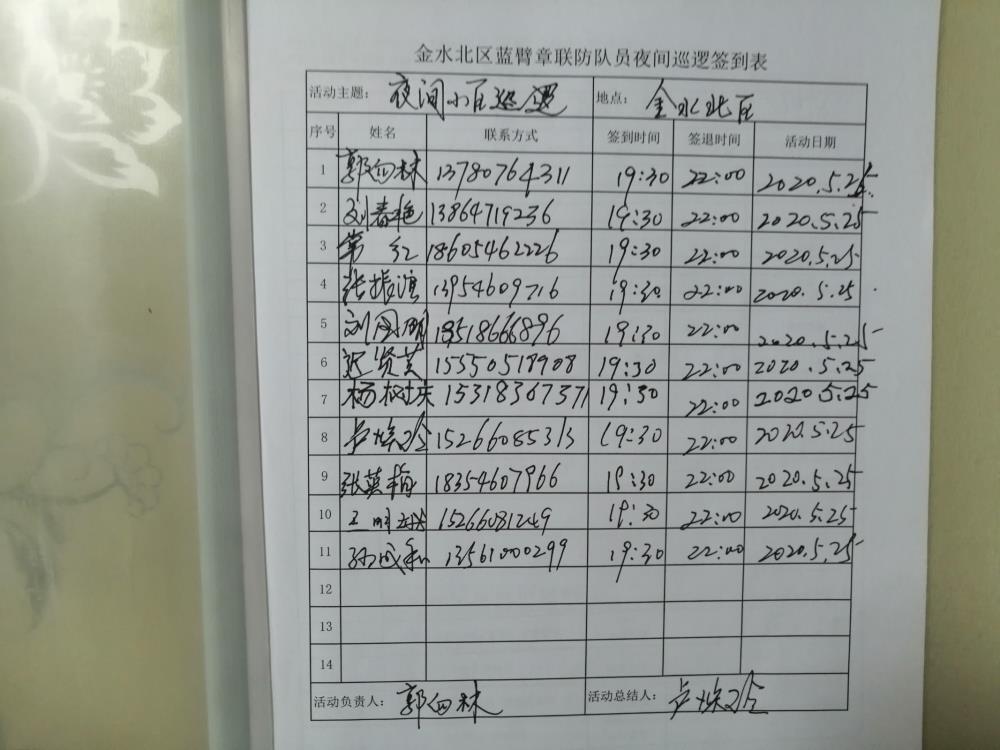 金水北区蓝臂章联防队员夜间巡逻签到表
活动主题: 夜间小区巡逻 地点: 金水北区
序号 姓名 联系方式 签到时间 签退时间 活动日期
1 郭向林 13780764311 19:30 22:00 2020.5.25
2 刘春艳 13864719236 19:30 22:00 2020.5.25
3 常红 18605462226 19:30 22:00 2020.5.25
4 张振滨 13954609716 19:30 22:00 2020.5.25
5 刘国明 18518666896 19:30 22:00 2020.5.25
6 迟贤芝 15550518908 19:30 22:00 2020.5.25
7 杨树庆 15318367371 19:30 22:00 2020.5.25
8 卢焕 15266085313 19:30 22:00 2020.5.25
9 张英梅 18354607966 19:30 22:00 2020.5.25
10 王明 15266081249 19:30 22:00 2020.5.25
11 孙成 13561000299 19:30 22:00 2020.5.25
12
13
14
活动负责人: 郭向林 活动总结人: 卢焕